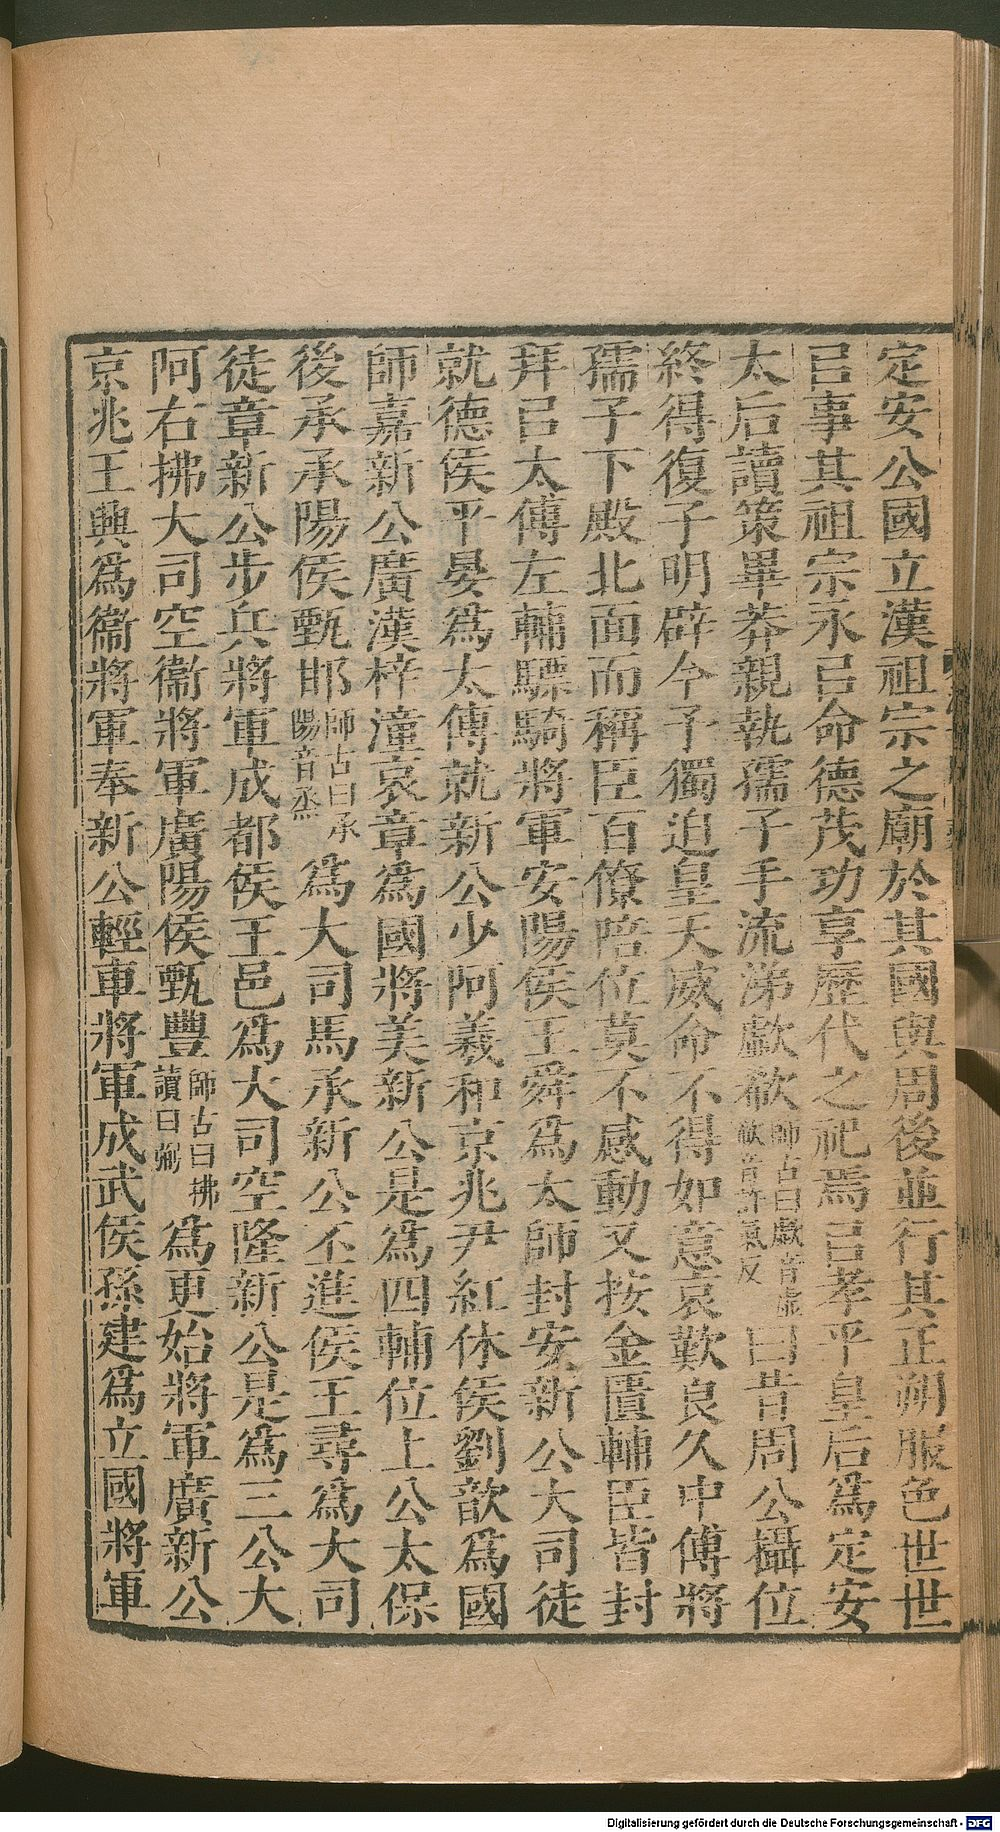 定安公國立漢祖宗之廟於其國與周後並行其正朔服色世世
㠯事其祖宗永㠯命德茂功享歷代之祀焉㠯孝平皇后爲定安
太后讀策畢莽親執孺子手流涕歔欷師古曰歔音虛欷音許氣反曰昔周公攝位
終得復子明辟今予獨迫皇天威命不得如意哀歎良久中傅將
孺子下殿北面而稱臣百僚陪位莫不感動又按金匱輔臣皆封
拜㠯太傅左輔驃騎將軍安陽侯王舜爲太師封安新公大司徒
就德侯平晏爲太傅就新公少阿羲和京兆尹紅休侯劉歆爲國
師嘉新公廣漢梓潼哀章爲國將美新公是爲四輔位上公太保
後承承陽侯甄邯師古曰承陽音烝爲大司馬承新公丕進侯王尋爲大司
徒章新公步兵將軍成都侯王邑爲大司空隆新公是爲三公大
阿右拂大司空衞將軍廣陽侯甄豐師古曰拂讀曰弼爲更始將軍廣新公
京兆王興爲衞將軍奉新公輕車將軍成武侯孫建爲立國將軍
Digitalisierung gefördert durch die Deutsche Forschungsgemeinschaft - DFG